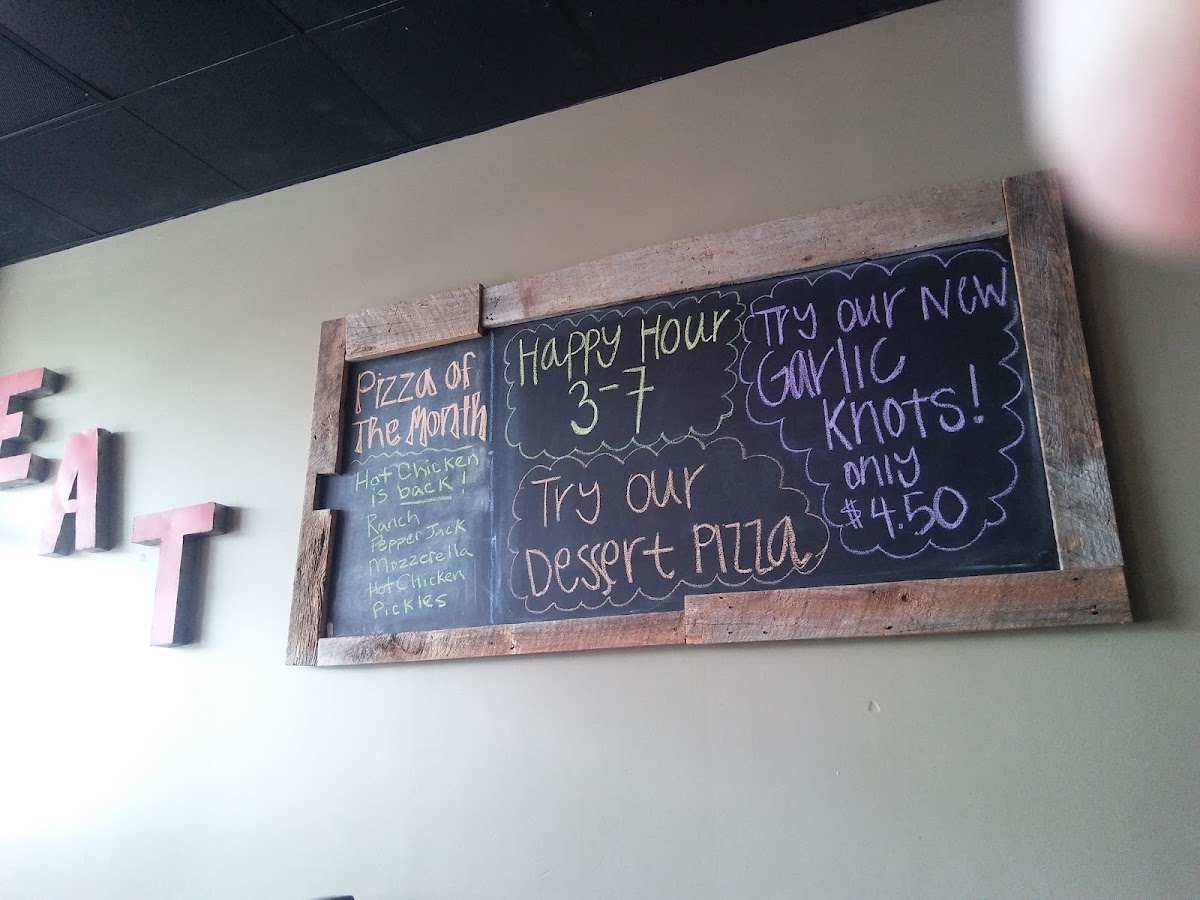 EAT
Pizza of
The Month
Hot Chicken
is back!
Ranch
Pepper Jack
Mozzerella
Hot Chicken
Pickles
Happy Hour
3-7
Try our
Dessert Pizza
Try our New
Garlic
Knots!
only
$4.50